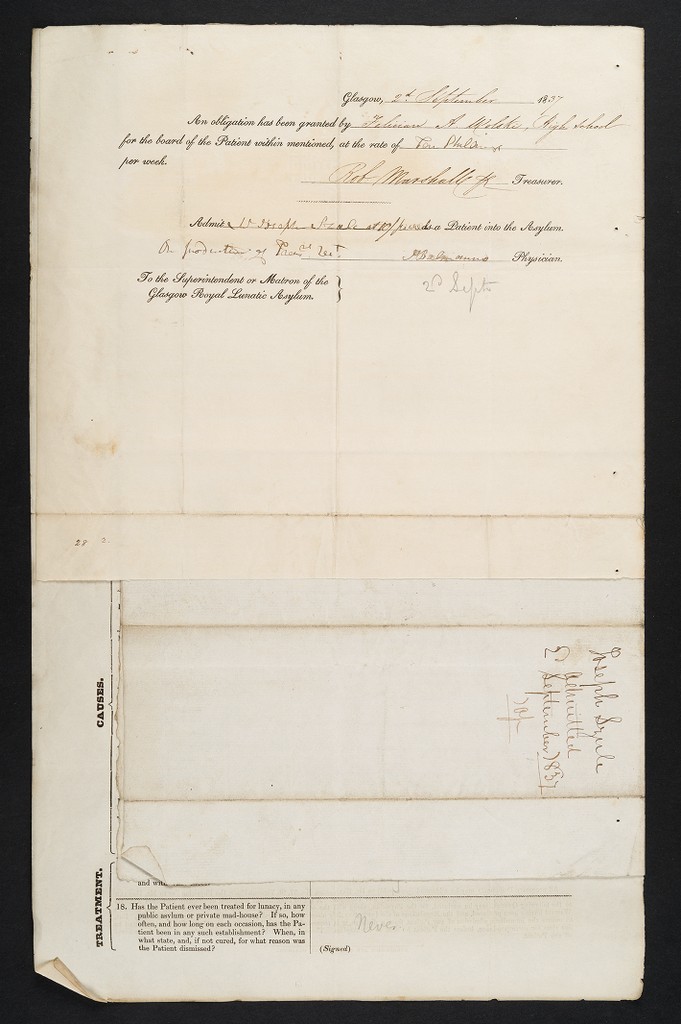 Glasgow, 2d September 1837
An obligation has been granted by A. Wolski, High School
for the board of the Patient within mentioned, at the rate of Ten Shillings
per week.
Rob Marshall Treasurer.
Admit Joseph Szule at 10/ per week as a Patient into the Asylum.
On production of Physician.
To the Superintendent or Matron of the
Glasgow Royal Lunatic Asylum.
2d Septr
28 2
Joseph Szule
admitted
2d September 1837
10/
CAUSES.
TREATMENT.
and with
18. Has the Patient ever been treated for lunacy, in any
public asylum or private mad-house? If so, how
often, and how long on each occasion, has the Pa-
tient been in any such establishment? When, in
what state, and, if not cured, for what reason was
the Patient dismissed?
Never
(Signed)